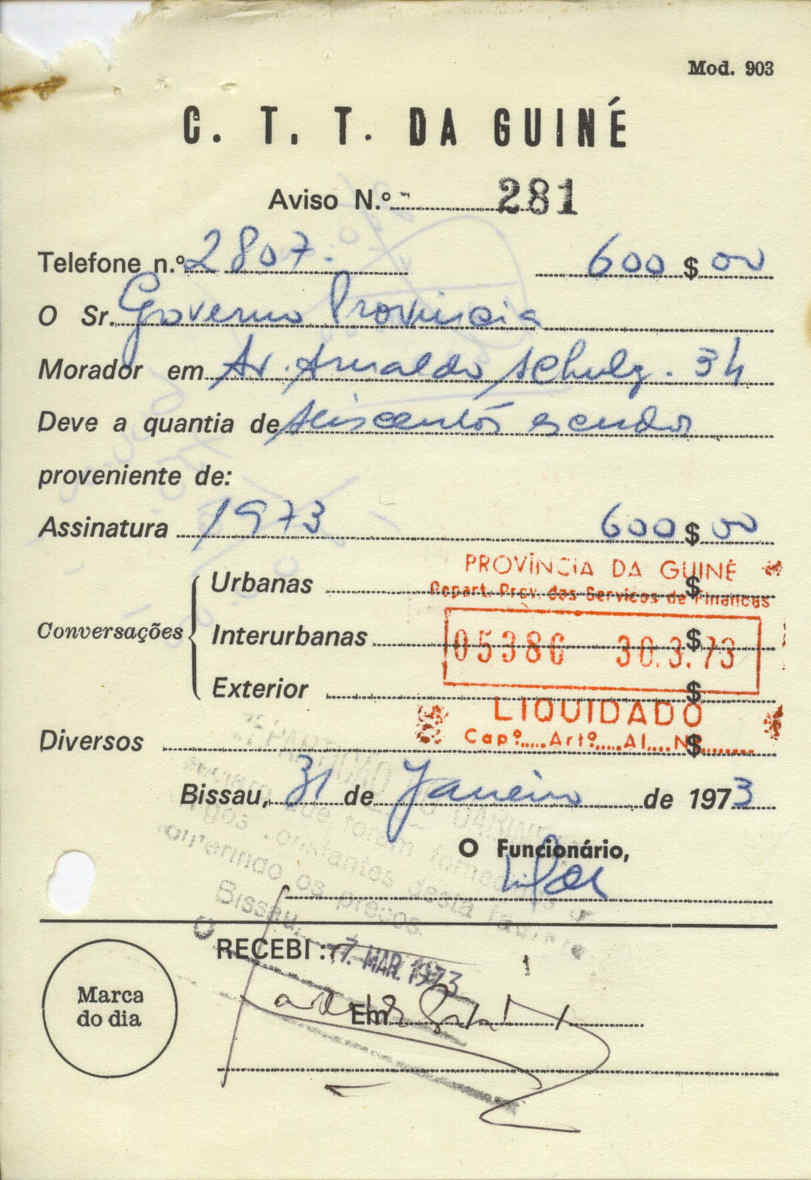 Mod. 903
C. T. T. DA GUINÉ
Aviso N.º 281
Telefone n.º 2807. 600 $ 00
O Sr. Governo Provincia
Morador em Av. Arnaldo Schulz. 34
Deve a quantia de seiscentos escudos
proveniente de:
Assinatura 1973 600 $ 00
PROVÍNCIA DA GUINÉ
Urbanas $
Repart. Prov. dos Serviços de Finanças
Conversações Interurbanas $
05386 30.3.73
Exterior $
LIQUIDADO
Diversos $
Capº..... Artº..... Al.... Nº
Bissau, 31 de Janeiro de 1973
O Funcionário,
constantes desta
os preços
Bissau,
RECEBI :
7. MAR. 1973
Marca
do dia
Em